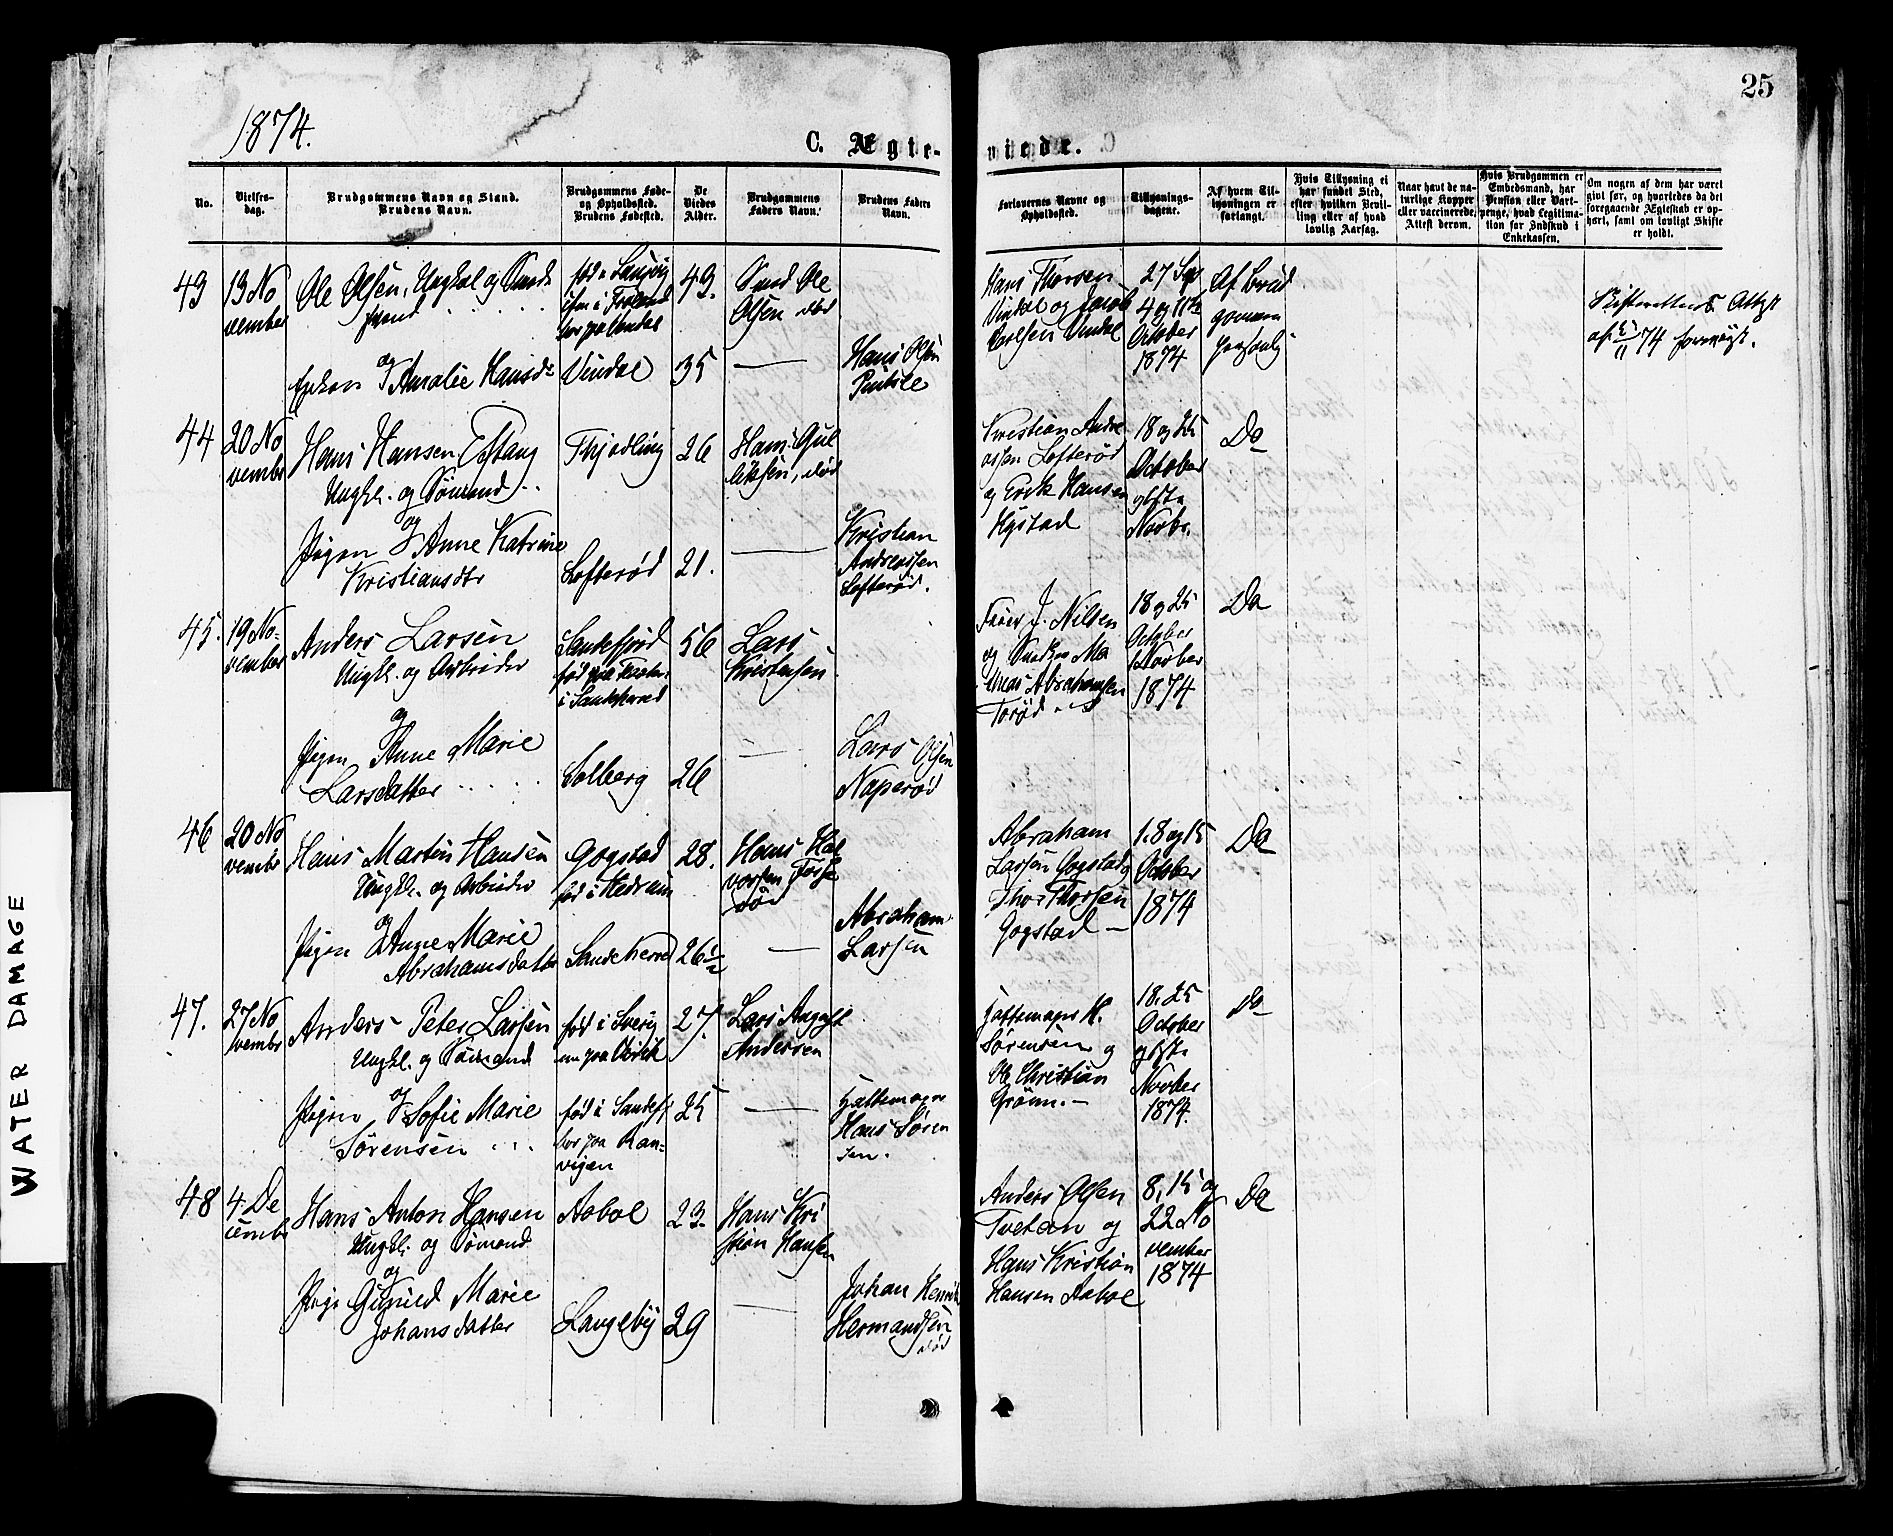 1874.
C. Ægte-
viede.
25
No.
Vielses-
dag.
Brudgommens Navn og Stand.
Brudens Navn.
Brudgommens Føde-
og Opholdssted.
Brudens Fødested.
De
Viedes
Alder.
Brudgommens
Faders Navn.
Brudens Faders
Navn.
Forlovernes Navne og
Opholdssted.
Tillysnings-
dagene.
Af hvem Til-
lysningen er
forlangt.
Hvis Tillysning ei
har fundet Sted,
efter hvilken Bevil-
ling eller af hvad
lovlig Aarsag.
Naar havt de na-
turlige Kopper
eller vaccinerede,
Attest derom.
Hvis Brudgommen er
Embedsmand, har
Pension eller Vart-
penge, hvad Legitima-
tion for Indskud i
Enkekassen.
Om nogen af dem har været
givt før, og hvorledes da det
foregaaende Ægteskab er op-
hørt, samt om lovligt Skifte
er holdt.
43
13 No
vember
Ole Olsen, Ungkal og
mand
og
Enken Amalie Hansd
Vindal
43.
35
Ole
Olsen død
Hans Olsen
Hans Thorsen
Vindal og Jacob
Carlsen Vindal
27 Sep
4 og 11te
October
1874
Af Brud
gommen
personlig
Skifterettens Attest
af 74 foreviist.
44
20 No
vembr
Hans Hansen
Ungkl. og Sømand
og
Pigen Anne Katrine
Kristiansdtr
Thjodling
Lofterød
26
21.
Hans Gul
liksen, død
Kristian
Andreassen
Lofterød.
Kristian Andre
assen Lofterød
og Erik Hansen
Nystad
18 og 25
October
og 1ste
Novbr.
Do
45.
19 No-
vember
Anders Larsen
Ungk. og Arbeider
og
Pigen Anne Marie
Larsdatter
Sandefjord
født paa
i Sandeherred
Solberg
56
26
Lars
Kristensen
Lars Olsen
Naperød
J. Nilsen
og Ma
thias Abrahamsen
Torød
18 og 25
October
1 Novber
1874
Do
46
20 No
vembr
Hans Martin Hansen
Ungk. og Arbeider
og
Pigen Anne Marie
Abrahamsdatter
Gogstad
fød i Hedrum
Sandeherred
28.
26½
Hans Hal
vorsen
død
Abraham
Larsen
Abraham
Larsen Gogstad og
Thor Thorsen
Gogstad
1. 8 og 15
October
1874
Do
47.
27 No
vembr
Anders Peter Larsen
Ungkl. og Sømand
og
Pigen Sofie Marie
Sørensen
fød i Sverig
fød i Sandefj
bor paa Ran-
vigen
27.
25
Lars August
Andersen
Hattemager
Hans Søren
sen.
Hattemager H.
Sørensen og
Ole Christian
Grønn.
18. 25
October
og 1ste
Novber
1874.
Do
48
4. De
cembr
Hans Anton Hansen
Ungkl. og Sømand
og
Pige Gunild Marie
Johansdatter
Aabol
Langeby
23.
29
Hans Kri
stian Hansen
Johan Henrik
Hermandsen
død
Anders Olsen
Tvetan og
Hans Kristian
Hansen Aabol
8, 15 og
22 No
vember
1874
Do
WATER DAMAGE